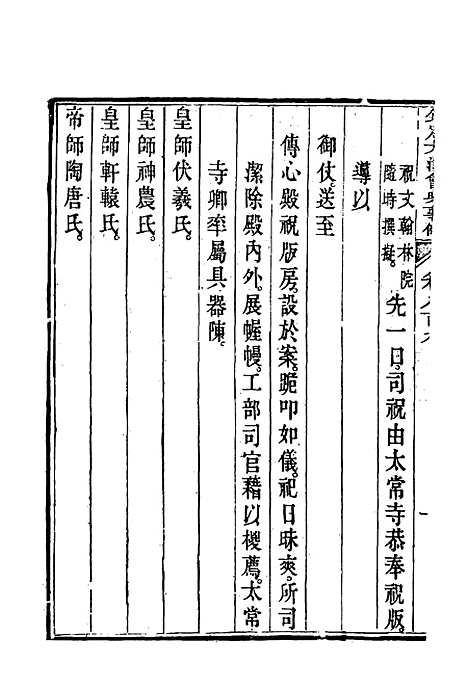 祝文翰林院
隨時撰擬。
先一日。司祝由太常寺恭奉祝版。
導以
御仗。送至
傳心殿祝版房。設於案。跪叩如儀。祀日昧爽。所司
潔除殿內外。展幄幔。工部司官藉以椶薦。太常
寺卿率屬具器陳。
皇師伏羲氏。
皇師神農氏。
皇師軒轅氏。
帝師陶唐氏。